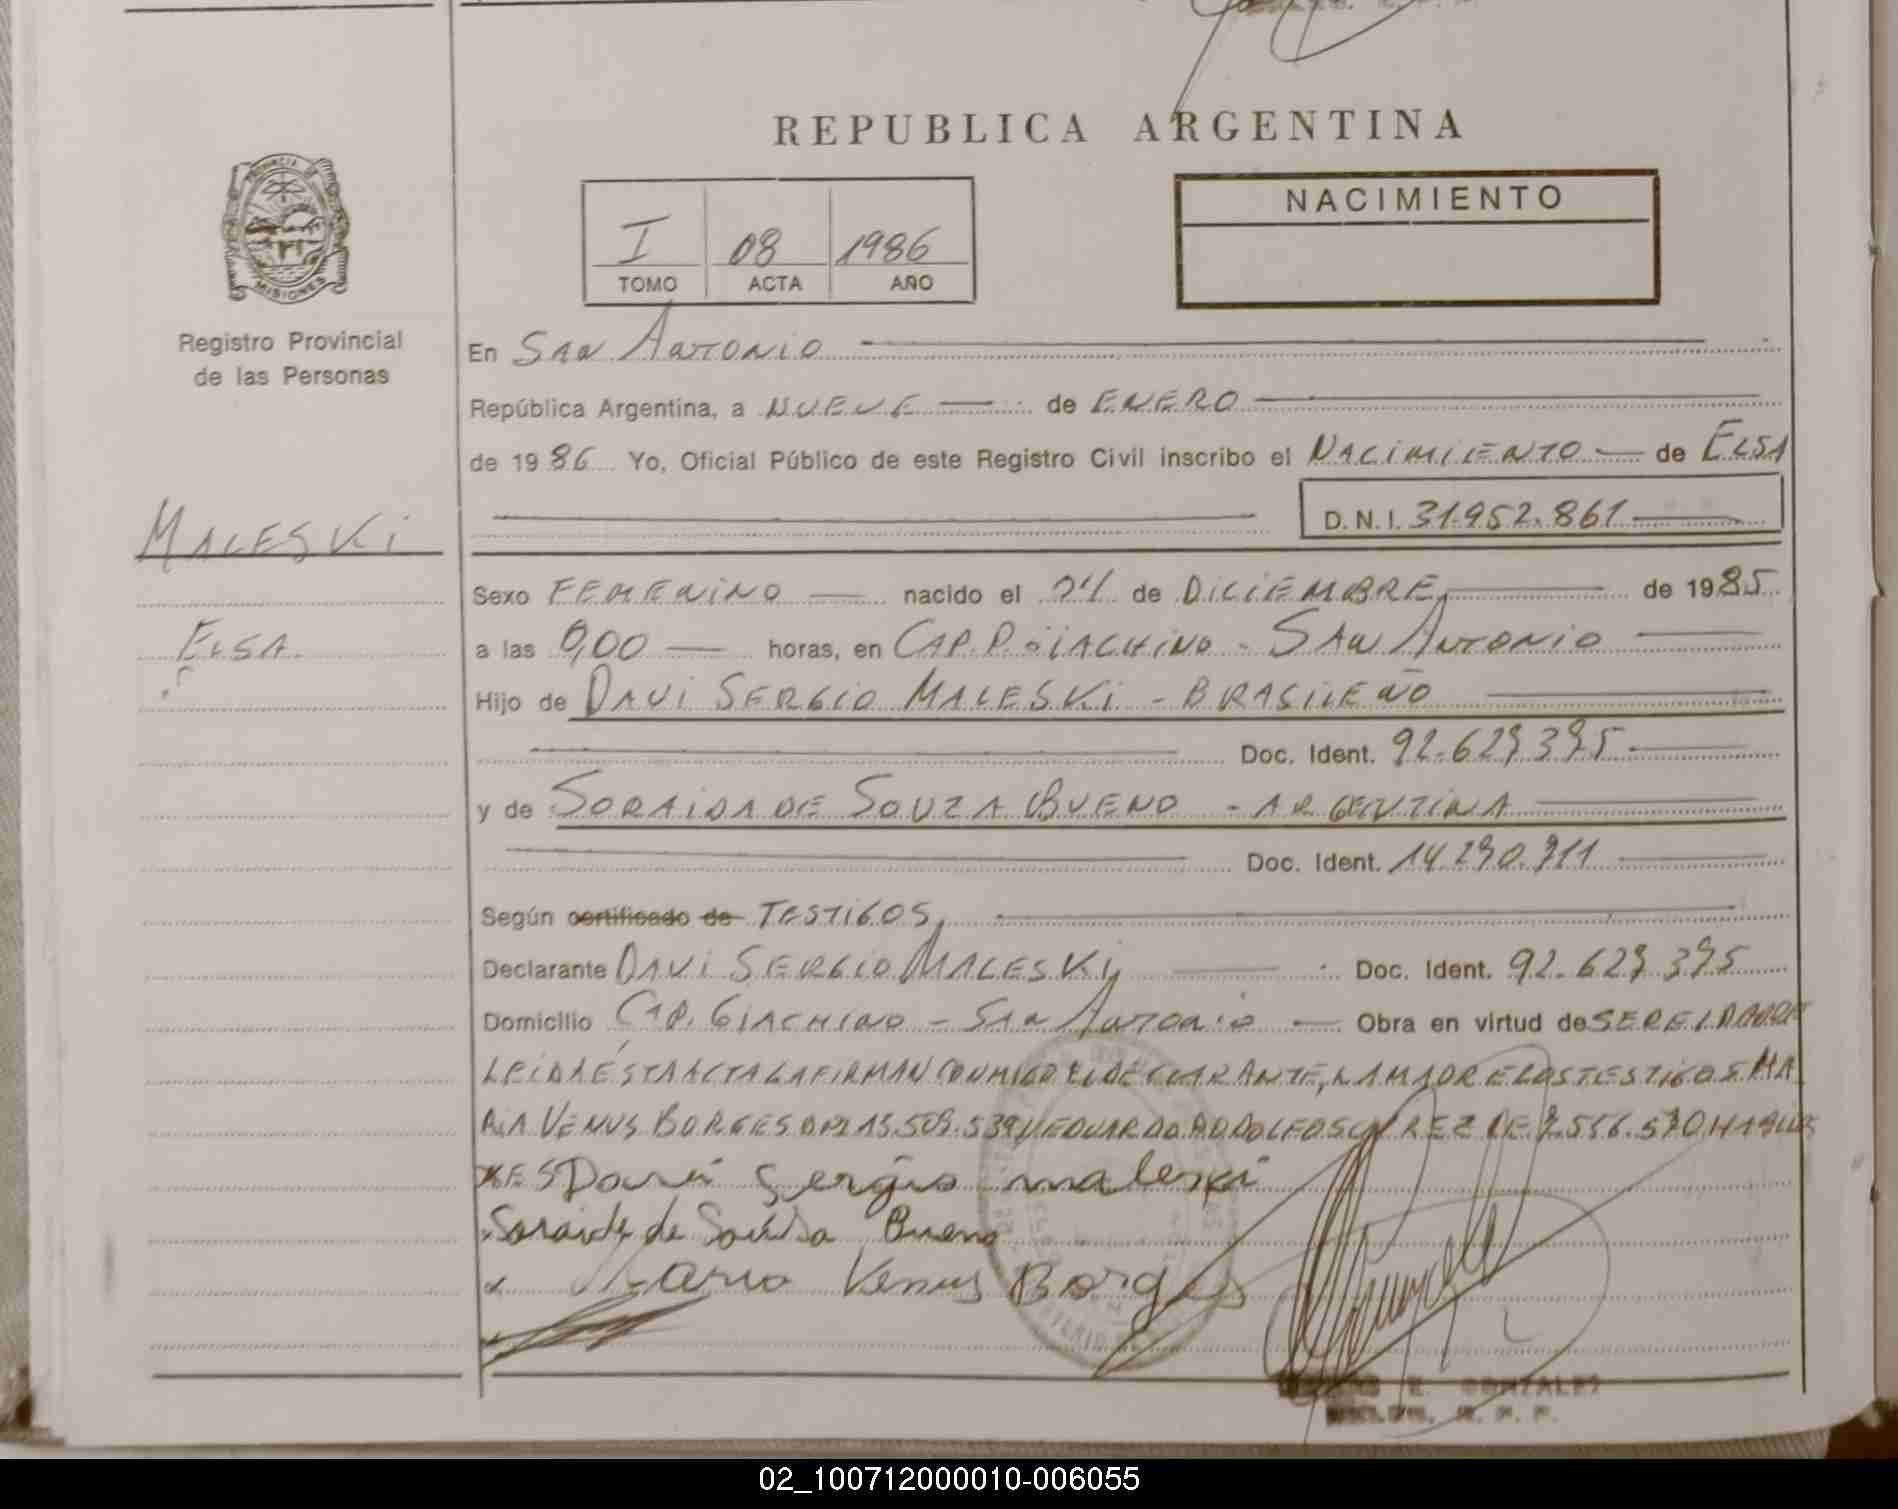 REPUBLICA ARGENTINA
PROVINCIA DE
MISIONES
Registro Provincial
de las Personas
I 08 1986
TOMO ACTA AÑO
NACIMIENTO
En SAN ANTONIO
República Argentina, a NUEVE de ENERO
de 1986 Yo, Oficial Público de este Registro Civil inscribo el NACIMIENTO de ELSA
D.N.I. 31.952.861
MALESKI
ELSA
Sexo FEMENINO nacido el de DICIEMBRE de 1985
a las 0,00 horas, en CAP. P. GIACHINO - SAN ANTONIO
Hijo de DAVI SERGIO MALESKI - BRASILEÑO
Doc. Ident.
y de SORAIDA DE SOUZA BUENO - ARGENTINA
Doc. Ident.
Según certificado de TESTIGOS,
Declarante DAVI SERGIO MALESKI, Doc. Ident.
Domicilio CAP. GIACHINO - SAN ANTONIO Obra en virtud de SER EL PADRE
LEIDA ESTA ACTA LA FIRMAN CONMIGO EL DECLARANTE, LA MADRE LOS TESTIGOS MA
RIA VENUS BORGES DNI Y EDUARDO ADOLFO
Davi Sergio maleski
Soraida de Bueno
Venus Borges
E. GONZALEZ
R. P. P.
02_100712000010-006055